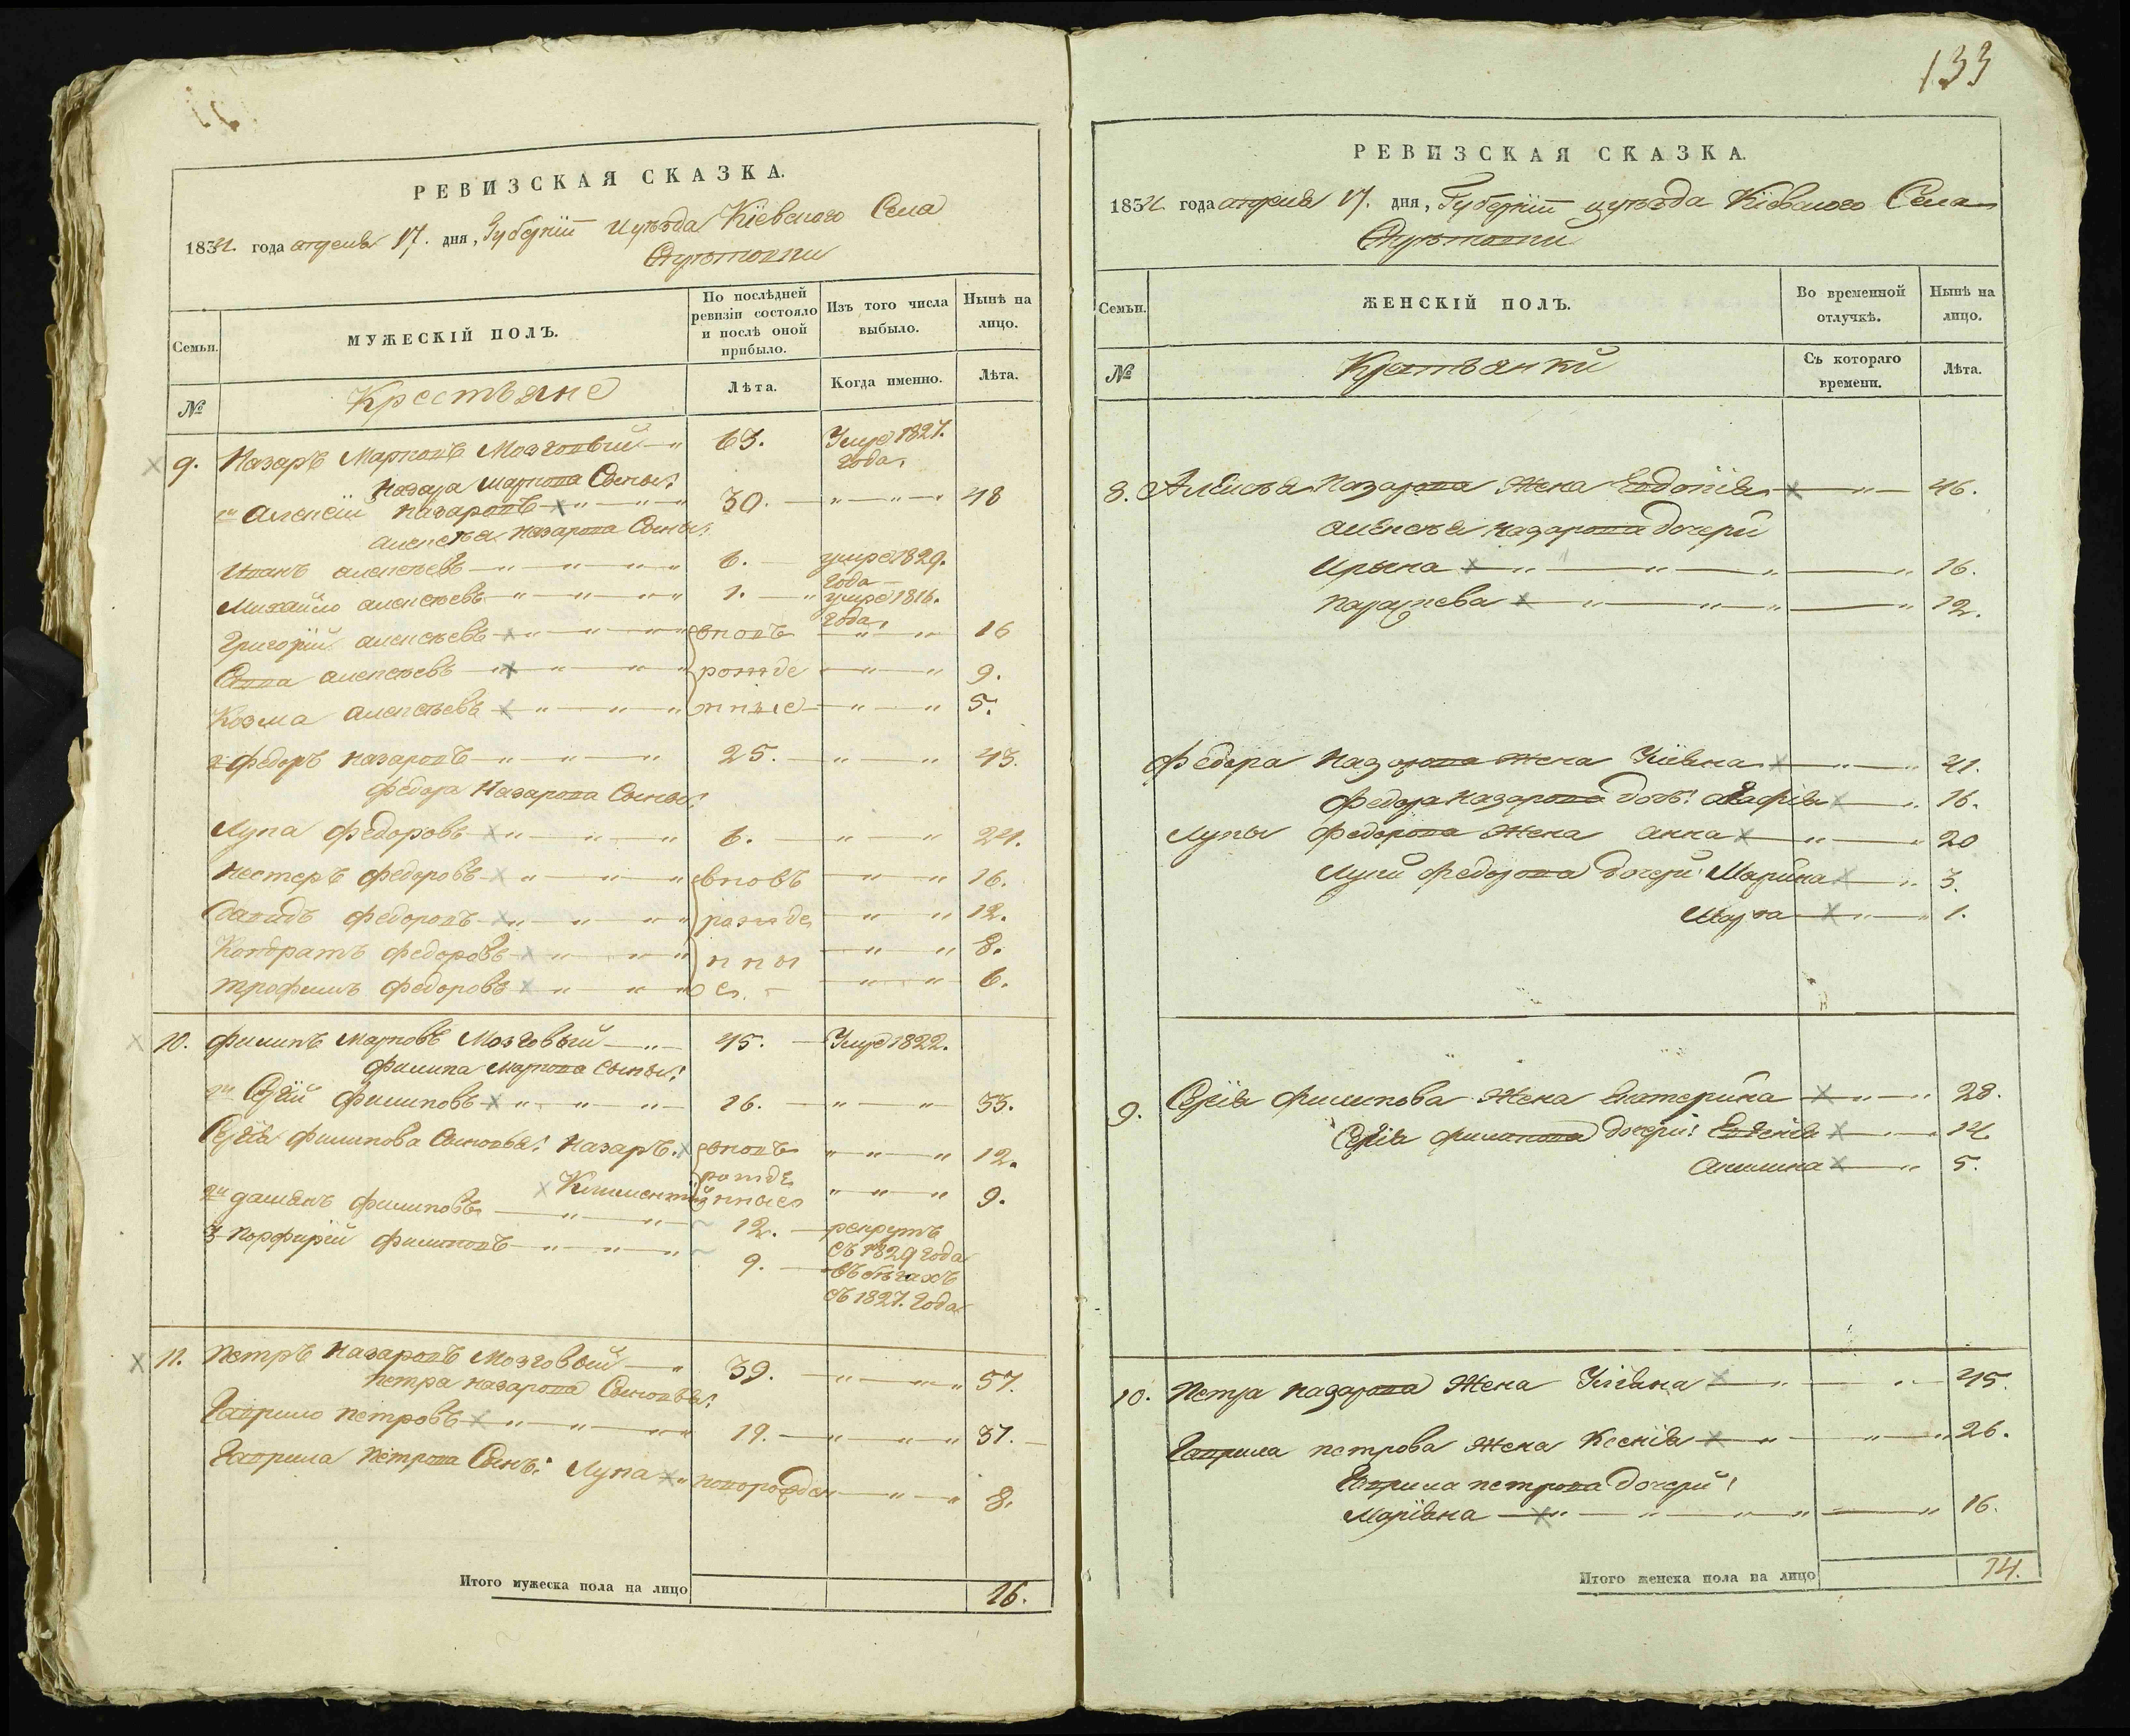 РЕВИЗСКАЯ СКАЗКА.
1834 года апреля 17. дня, Губернiи и уѣзда Кiевскаго Села
МУЖЕСКІЙ ПОЛЪ.
По послѣдней ревизіи состояло и послѣ оной прибыло.
Изъ того числа выбыло.
Нынѣ на лицо.
Семьи.
№
Крестьяне
Лѣта.
Когда именно.
Лѣта.
9. Назаръ Марковъ Мозговый 63. Умре 1827. года.
Назара Маркова Сыны:
Алексiй Назаровъ 30. 48
Алексѣя Назарова Сыны:
Иванъ Алексѣевъ 6. умре 1829. года
Михайло Алексѣевъ 1. умре 1816. года.
Григорiй Алексѣевъ вновь 16
Савва Алексѣевъ рожде 9.
Козма Алексѣевъ нные 5.
2 Федоръ Назаровъ 25. 43.
Федора Назарова Сыны:
Лупа Федоровъ 6. 24.
Нестеръ Федоровъ вновь 16.
Давидъ Федоровъ рожде 12.
Кондратъ Федоровъ нны 8.
Трофимъ Федоровъ е. 6.
10. Филипъ Марковъ Мозговый 45. Умре 1822.
Филипа Маркова Сыны:
Сергiй Филиповъ 16. 33.
Сергiя Филипова Сыновья: Назаръ. вновь 12.
Климентiй рожде нные 9.
Дамянъ Филиповъ 12. рекрутъ съ 1829 года
3 Порфирiй Филиповъ 9. въ бѣгахъ съ 1827. года
11. Петръ Назаровъ Мозговый 39. 57.
Петра Назарова Сыновья:
Гаврило Петровъ 19. 37.
Гаврила Петрова Сынъ: Лупа новорожден 8.
Итого мужеска пола на лицо 16.
133
РЕВИЗСКАЯ СКАЗКА.
1834 года апреля 17. дня, Губернiи и уѣзда Кiевскаго Села
Семьи.
ЖЕНСКІЙ ПОЛЪ.
Во временной отлучкѣ.
Нынѣ на лицо.
№
Крестьянки
Съ котораго времени.
Лѣта.
8. Алексѣя Назарова Жена Евдокiя 46.
Алексѣя Назарова дочери
Ирына 16.
Параскева 12.
Федора Назарова Жена Улiяна 41.
Федора Назарова дочь: Агафiя 16.
Лупы Федорова Жена Анна 20
Лупы Федорова дочери: Марина 3.
Марта 1.
9. Сергiя Филипова Жена Екатерина 28.
Сергiя Филипова дочери: Евгенiя 14.
Акилина 5.
10. Петра Назарова Жена Улiяна 45.
Гаврила Петрова Жена Ксенiя 26.
Гаврила Петрова дочери:
Марiяна 16.
Итого женска пола на лицо 14.